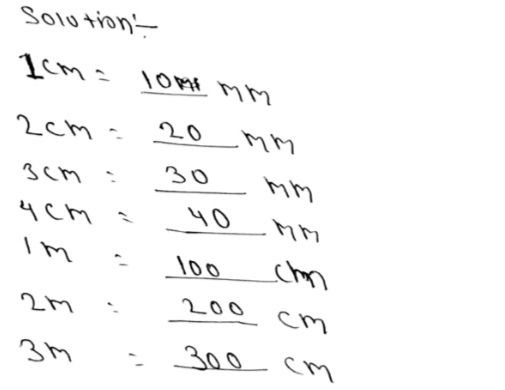 Solution:-
1cm = 10 mm
2cm = 20 mm
3cm = 30 mm
4cm = 40 mm
1m = 100 cm
2m = 200 cm
3m = 300 cm